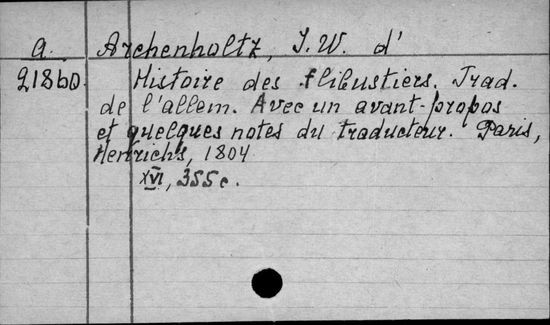 a. Archenholtz, J. W. d'
21860. Histoire des flibustiers. Trad.
de l'allem. Avec un avant-propos
et quelques notes du traducteur. Paris,
Henrichs, 1804
XVI, 355 c.